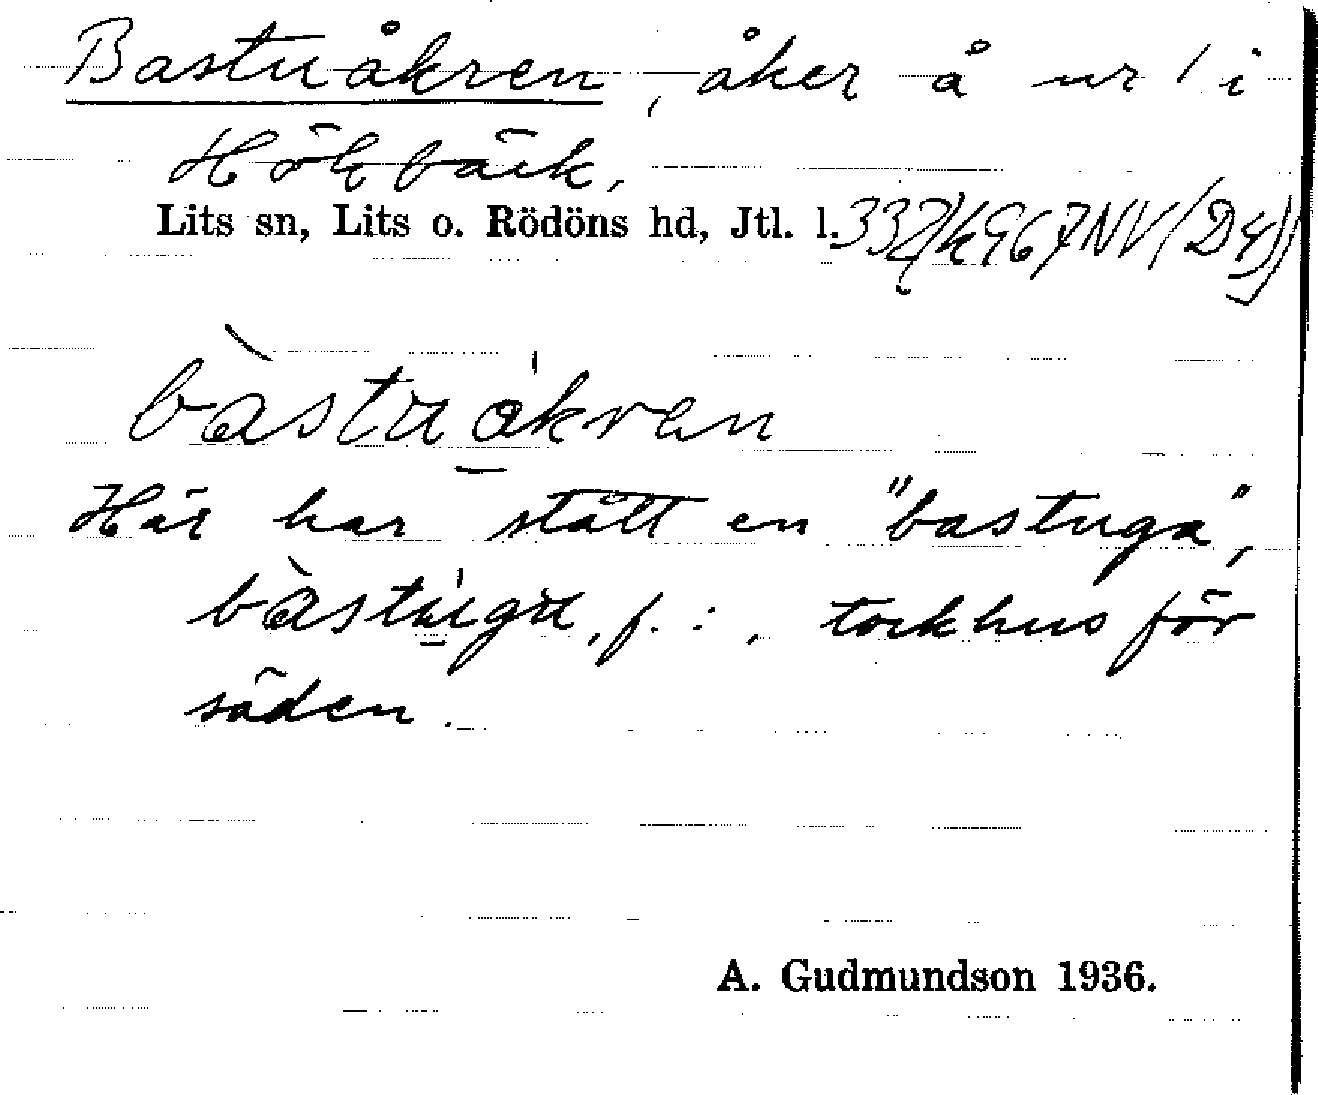 Bastuåkren, åker å nr 1 i
Hökbäck.
Lits sn, Lits o. Rödöns hd, Jtl. l.
bàstuåkren
Här har stått en "bastuga",
bàstuga, f. :, torkhus för
säden.
A. Gudmundson 1936.